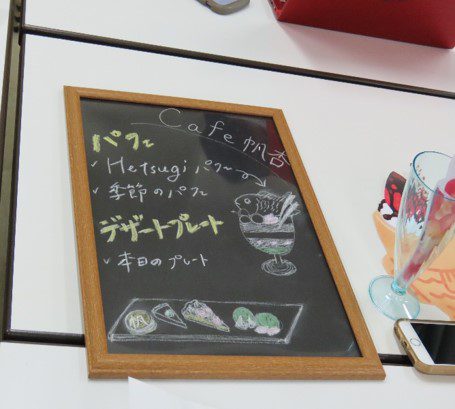 Cafe 帆杏
パフェ
✓ Hetsugi パフェ
✓ 季節のパフェ
デザートプレート
✓ 本日のプレート
帆